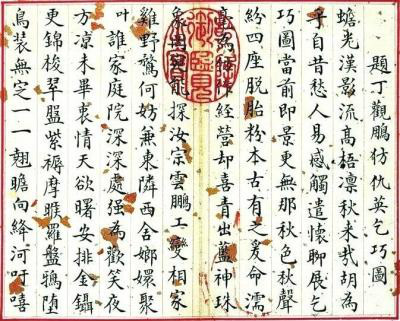 題丁觀鵬仿仇英乞巧圖
蟾光漢影流高梧凛秋来哉胡為
乎自昔愁人易感觸遣懷聊展乞
巧圖當前即景更無那秋色秋聲
紛四座脫胎粉本古有之爰命濡
毫經營却喜青出藍神珠
象罔能探汝宗雲鵬工雙相家
雞野鶩何妨兼東隣西舍嫏嬛聚
叶誰家庭院深深處强為歡笑夜
方凉未畢衷情天欲曙安排金鑷
更錦梭翠盤紫褥摩睺羅盤鵶堕
鳥裝無定一一翹瞻向絳河吁嘻